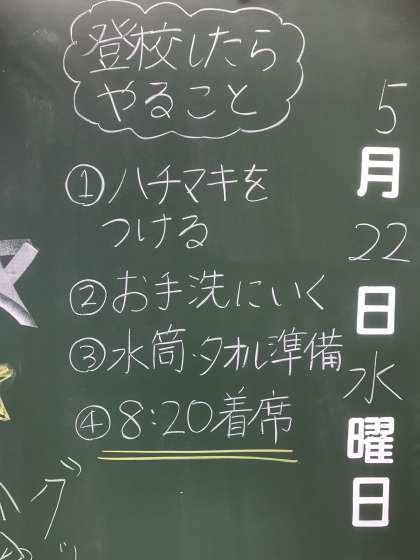 登校したら
やること
①ハチマキを
つける
②お手洗にいく
③水筒・タオル準備
④8:20着席
5
月
22
日
水
曜
日